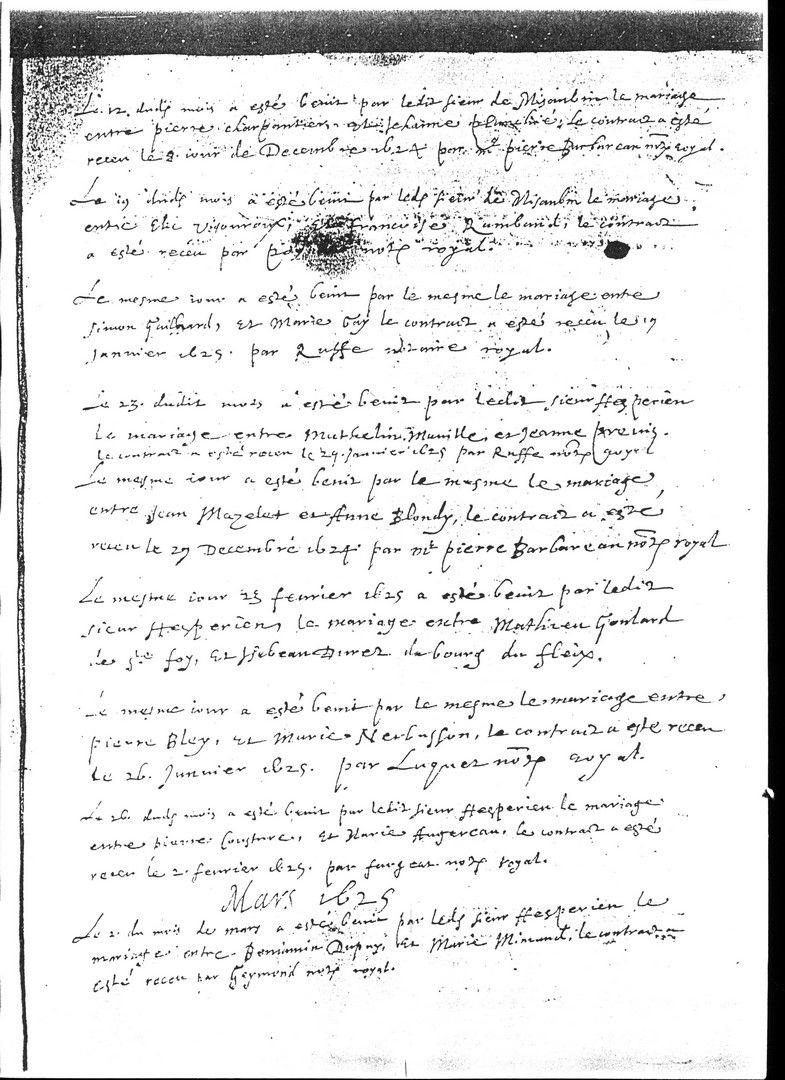 Le 12 dudt mois a esté benit par ledit sieur de Misaubin le mariage
entre pierre charpentier, et Jehanne le contract a esté
receu le 9 iour de Decembre 1624 par mt pierre Barbareau notre royal.
Le 19 dudt mois a esté benit par ledt sieur de Misaubin le mariage
entre Elie Vigouroux, et Francoise Rambaud, le contract
a esté receu par notre royal.
Le mesme iour a esté benit par le mesme le mariage entre
Simon Guilhard, et Marie Gay le contract a esté receu le 19
Janvier 1625. par Ruffe notaire royal.
Le 23. dudit mois a esté benit par ledit sieur Hesperien
le mariage entre Mathelin Maville, et Jeanne
le contract a esté receu le 29. Janvier 1625 par Ruffe notre royal
Le mesme iour a esté benit par le mesme le mariage
entre Jean Mazelat et Anne Blondy, le contract a esté
receu le 29 Decembre 1624. par mt pierre Barbareau notre royal
Le mesme iour 23 fevrier 1625 a esté benit par ledit
sieur Hesperien, le mariage entre Mathieu Goulard
de ste foy, et Isabeau Duret du bourg du fleix.
Le mesme iour a esté benit par le mesme le mariage entre
pierre Bley, et Marie Nerbusson, le contract a esté receu
le 26. Janvier 1625. par Luquet notre royal.
Le 26. dudt mois a esté benit par ledit sieur Hesperien le mariage
entre pierre Cousture, et Marie Augereau, le contract a esté
receu le 2. fevrier 1625. par furgeat notre royal.
Mars 1625
Le 2. du mois de mars a esté benit par ledt sieur Hesperien le
mariage entre Benjamin Dupuy, et Marie Mimaud, le contract a
esté receu par Geymond notre royal.